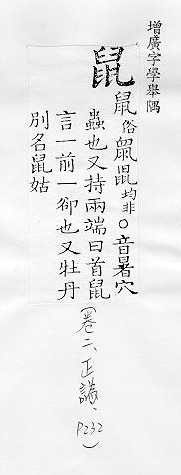 增廣字學舉隅
鼠
鼠俗䑕鼡均非○音暑穴
蟲也又持兩端曰首鼠
言一前一卻也又牡丹
別名鼠姑
(卷二、正譌、P232)